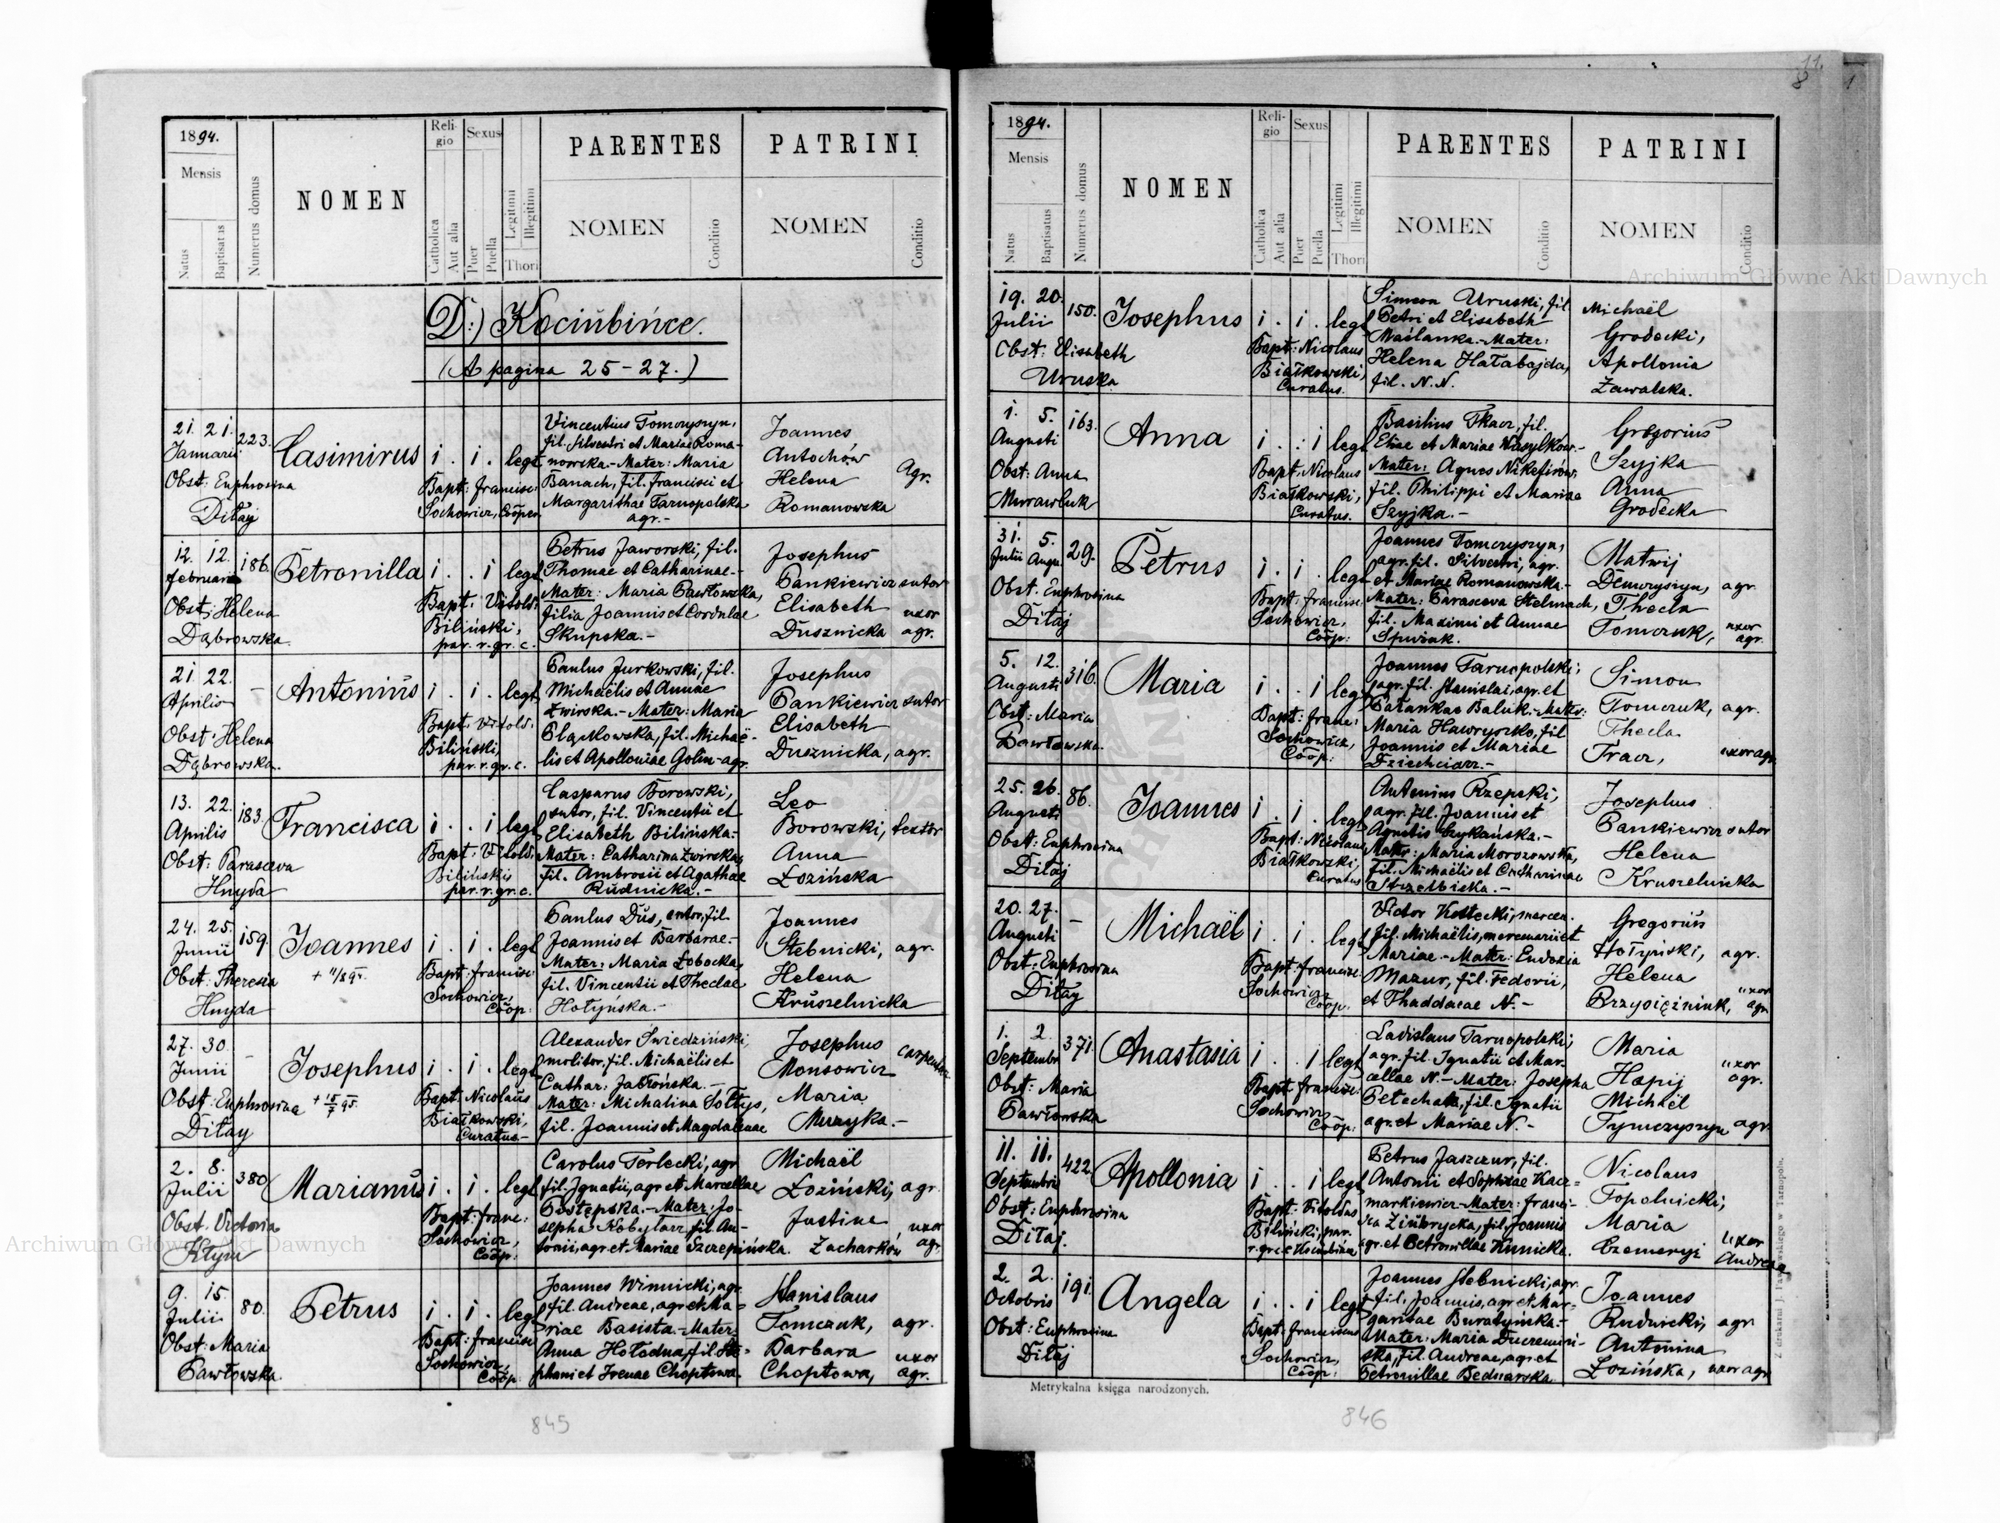 1894.
Mensis
Natus
Baptisatus
Numerus domus
NOMEN
Religio
Catholica
Aut alia
Sexus
Puer
Puella
Legitimi
Illegitimi
Thori
PARENTES
NOMEN
Conditio
PATRINI
NOMEN
Conditio
D:) Kociubińce.
(A pagina 25-27.)
21. 21. 223.
Januarii
Obst: Euphrosina
Diłaj
Casimirus
i . i . legt
Bapt: Francisc:
Sochowicz, Cooper.
Vincentius Tomczyszyn,
fil. Silvestri et Mariae Roma-
nowska - Mater: Maria
Banach, fil. Francisci et
Margarithae Tarnopolska
agr.-
Joannes
Antochów
Helena agr.
Romanowska
12. 12. 186.
Februarii
Obst: Helena
Dąbrowska
Petronilla
i . . i legt
Bapt: Vitold:
Biliński,
par. r. gr. c.
Petrus Jaworski, fil.
Thomae et Catharinae.-
Mater: Maria Pawłowska,
filia Joannis et Cordulae
Skupska.-
Josephus
Pankiewicz sutor
Elisabeth uxor
Dusznicka agr.
21. 22. -
Aprilis
Obst: Helena
Dąbrowska.
Antonius
i . i . legt
Bapt: Vitold:
Biliński,
par. r. gr. c.
Paulus Jurkowski, fil.
Michaëlis et Annae
Żwirska.- Mater: Maria
fil. Michaë-
lis et Apolloniae Golin- agr.
Josephus
Pankiewicz sutor
Elisabeth
Dusznicka, agr.
13. 22. 183.
Aprilis
Obst: Parasceva
Hnyda
Francisca
i . . i legt
Bapt: Vitold:
Biliński
par. r. gr. c.
Casparus Borowski,
sutor, fil. Vincentii et
Elisabeth Bilińska.-
Mater: Catharina Żwirska,
fil. Ambrosii et Agathae
Rudnicka.-
Leo
Borowski, textor
Anna
Łozińska
24. 25. 159.
Junii
Obst: Theresia
Hnyda
Joannes
+ 11/8 94.
i . i . legt
Bapt: Francisc:
Sochowicz,
Coop:
Paulus Dus, sutor, fil.
Joannis et Barbarae.-
Mater: Maria Łobocka,
fil. Vincentii et Theclae
Hołyńska.-
Joannes
Stebnicki, agr.
Helena
Kruszelnicka
27. 30. -
Junii
Obst: Euphrosina
Diłay
Josephus
+ 15/7 95.
i . i . legt
Bapt: Nicolaus
Białkowski,
Curatus.-
Alexander Swiedziński,
molitor, fil. Michaëlis et
Cathar: Jabłońska.-
Mater: Michalina Sołtys,
fil. Joannis et Magdalenae
Josephus carpentar
Monsowicz
Maria
Muzyka.-
2. 8. 380.
Julii
Obst. Victoria
Marianus
i . i . legt
Bapt: Franc:
Sochowicz,
Coop:
Carolus Terlecki, agr.
fil. Ignatii, agr. et Marcellae
Postępska.- Mater: Jo-
sepha Kobylarz, fil. An-
tonii, agr. et Mariae Szczepińska.
Michaël
Łoziński, agr.
Justine uxor
Zacharków agr.
9. 15. 80.
Julii
Obst: Maria
Pawłowska.
Petrus
i . i . legt
Bapt: Francisc:
Sochowicz,
Coop:
Joannes Winnicki, agr.
fil. Andreae, agr. et Ma-
riae Basista.- Mater:
Anna Hołodna, fil. Ste-
phani et Irenae Choptowa.
Stanislaus
Tomczuk, agr.
Barbara uxor
Choptowa, agr.
845
11.
8
1894.
Mensis
Natus
Baptisatus
Numerus domus
NOMEN
Religio
Catholica
Aut alia
Sexus
Puer
Puella
Legitimi
Illegitimi
Thori
PARENTES
NOMEN
Conditio
PATRINI
NOMEN
Conditio
19. 20. 150.
Julii
Obst: Elisabeth
Uruska
Josephus
i . i . legt
Bapt: Nicolaus
Białkowski,
Curatus.
Simeon Uruski, fil.
Petri et Elisabeth
Maślanka.- Mater:
Helena Hałabajda,
fil. N.N.
Michaël
Grodecki,
Apollonia
Zawalska.
1. 5. 163.
Augusti
Obst: Anna
Murawluk
Anna
i . . i legt
Bapt: Nicolaus
Białkowski,
Curatus.
Basilius Tkacz, fil.
Eliae et Mariae Wasylków.
Mater: Agnes Nikefirów,
fil. Philippi et Mariae
Szyjka.-
Gregorius
Szyjka
Anna
Grodecka
31. 5. 29.
Julii Augu.
Obst. Euphrosina
Diłaj
Petrus
i . i . legt
Bapt: Francisc:
Sochowicz,
Coop:
Joannes Tomczyszyn,
agr. fil. Silvestri, agr.
et Mariae Romanowska.-
Mater: Parasceva Stelmach,
fil. Maximi et Annae
Matwij
Demczyszyn, agr.
Thecla
Tomczuk, uxor agr.
5. 12. 316.
Augusti
Obst: Maria
Pawłowska
Maria
i . . i legt
Bapt: Franc:
Sochowicz,
Coop:
Joannes Tarnopolski,
agr. fil. Stanislai, agr. et
Baluk.- Mater:
Maria Hawryszko, fil.
Joannis et Mariae
Dziechciarz.-
Simon
Tomczuk, agr.
Thecla
Tracz, uxor agr.
25. 26. 86.
Augusti
Obst: Euphrosina
Diłaj
Joannes
i . i . legt
Bapt: Nicolaus
Białkowski,
Curatus
Antonius Rzepski,
agr. fil. Joannis et
Agnetis Cykańska.-
Mater: Maria Morozowska,
fil. Michaëlis et Catharinae
Strzelbicka.-
Josephus
Pankiewicz sutor
Helena
Kruszelnicka
20. 27. -
Augusti
Obst: Euphrosina
Diłay
Michaël
i . i . legt
Bapt: Francisc:
Sochowicz,
Coop.
Victor Kostecki, mercen.
fil. Michaëlis, mercenarii et
Mariae.- Mater: Eudoxia
Mazur, fil. Fedorii,
et Thaddaeae N.-
Gregorius
Hołyński, agr.
Helena
Przysiężniuk, uxor agr.
1. 2. 371.
Septembr.
Obst: Maria
Pawłowska
Anastasia
i . . i legt
Bapt: Francisc:
Sochowicz,
Coop:
Ladislaus Tarnopolski,
agr. fil. Ignatii et Mar-
cellae N.- Mater: Josepha
Petechata, fil. Ignatii
agr. et Mariae N.-
Maria
Hapij uxor agr.
Michaël
Tymczyszyn agr.
11. 11. 422.
Septembris
Obst: Euphrosina
Diłaj.
Apollonia
i . . i legt
Bapt: Vitoldus
Biliński, par.
r. gr. c. Kociubince
Petrus Jaszczur, fil.
Antonii et Sophiae Kacz-
markiewicz - Mater: Franci-
sca Zimbrycka, fil. Joannis
agr. et Petronillae Kunicka.
Nicolaus
Topolnicki,
Maria
Czemeryj uxor Andreae
2. 2. 191.
Octobris
Obst: Euphrosina
Diłaj
Angela
i . . i legt
Bapt: Franciscus
Sochowicz,
Coop:
Joannes Stebnicki, agr.
fil. Joannis, agr. et Mar-
garitae Buratyńska.-
Mater: Maria Duczemiń-
ska, fil. Andreae, agr. et
Petronillae Bednarska
Joannes
Rudnicki, agr.
Antonina
Łozińska, uxor agr.
Metrykalna księga narodzonych.
Z drukarni J. Pawłowskiego w Tarnopolu.
846
Archiwum Główne Akt Dawnych
Archiwum Główne Akt Dawnych